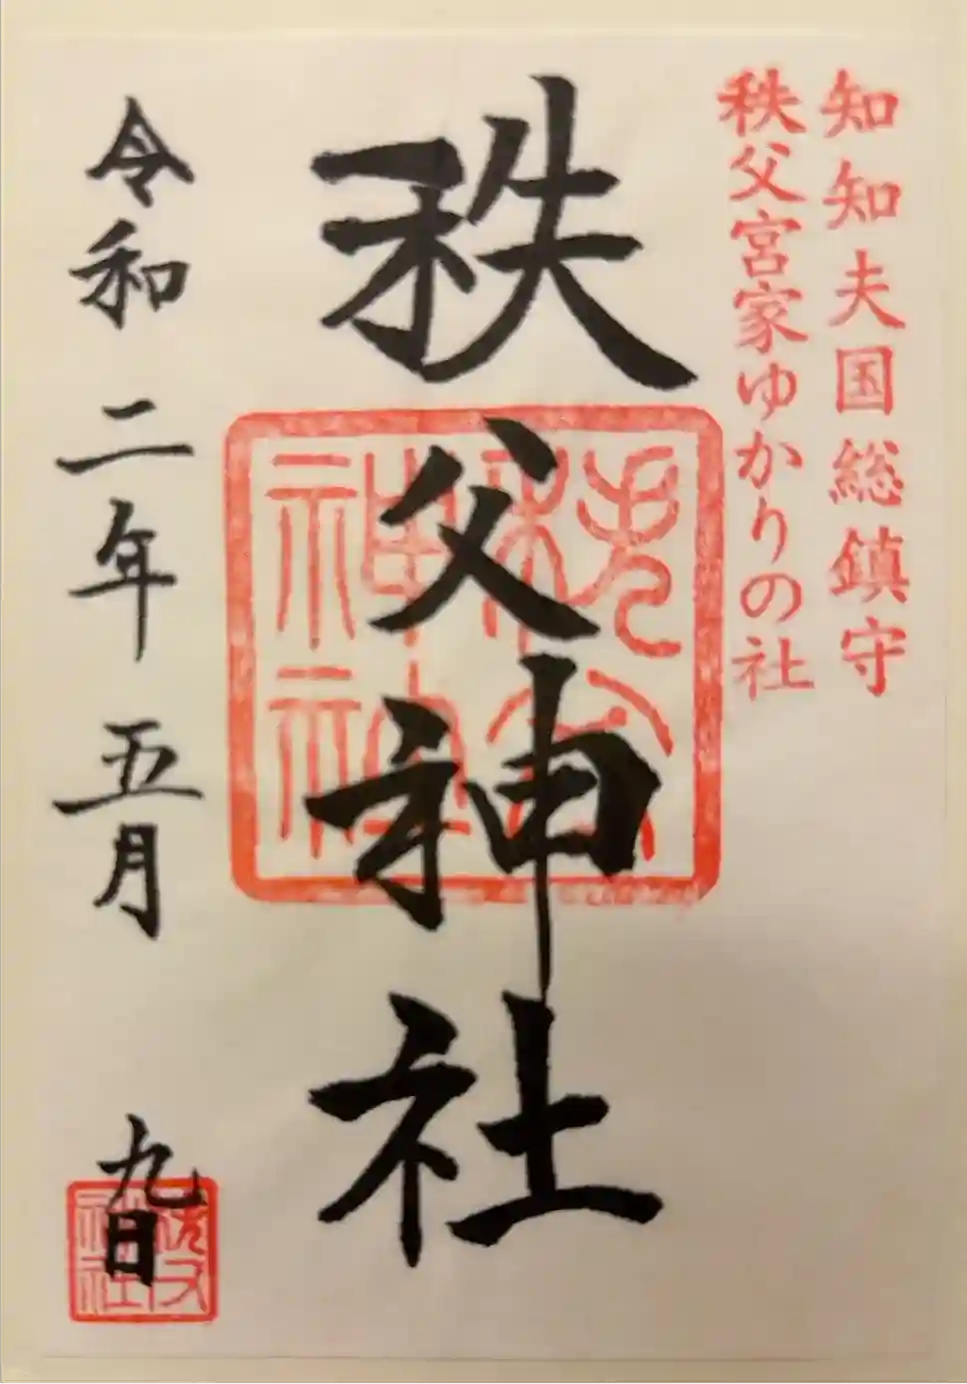 知知夫国総鎮守
秩父宮家ゆかりの社
秩父神社
秩父神社
令和二年五月九日
秩父神社